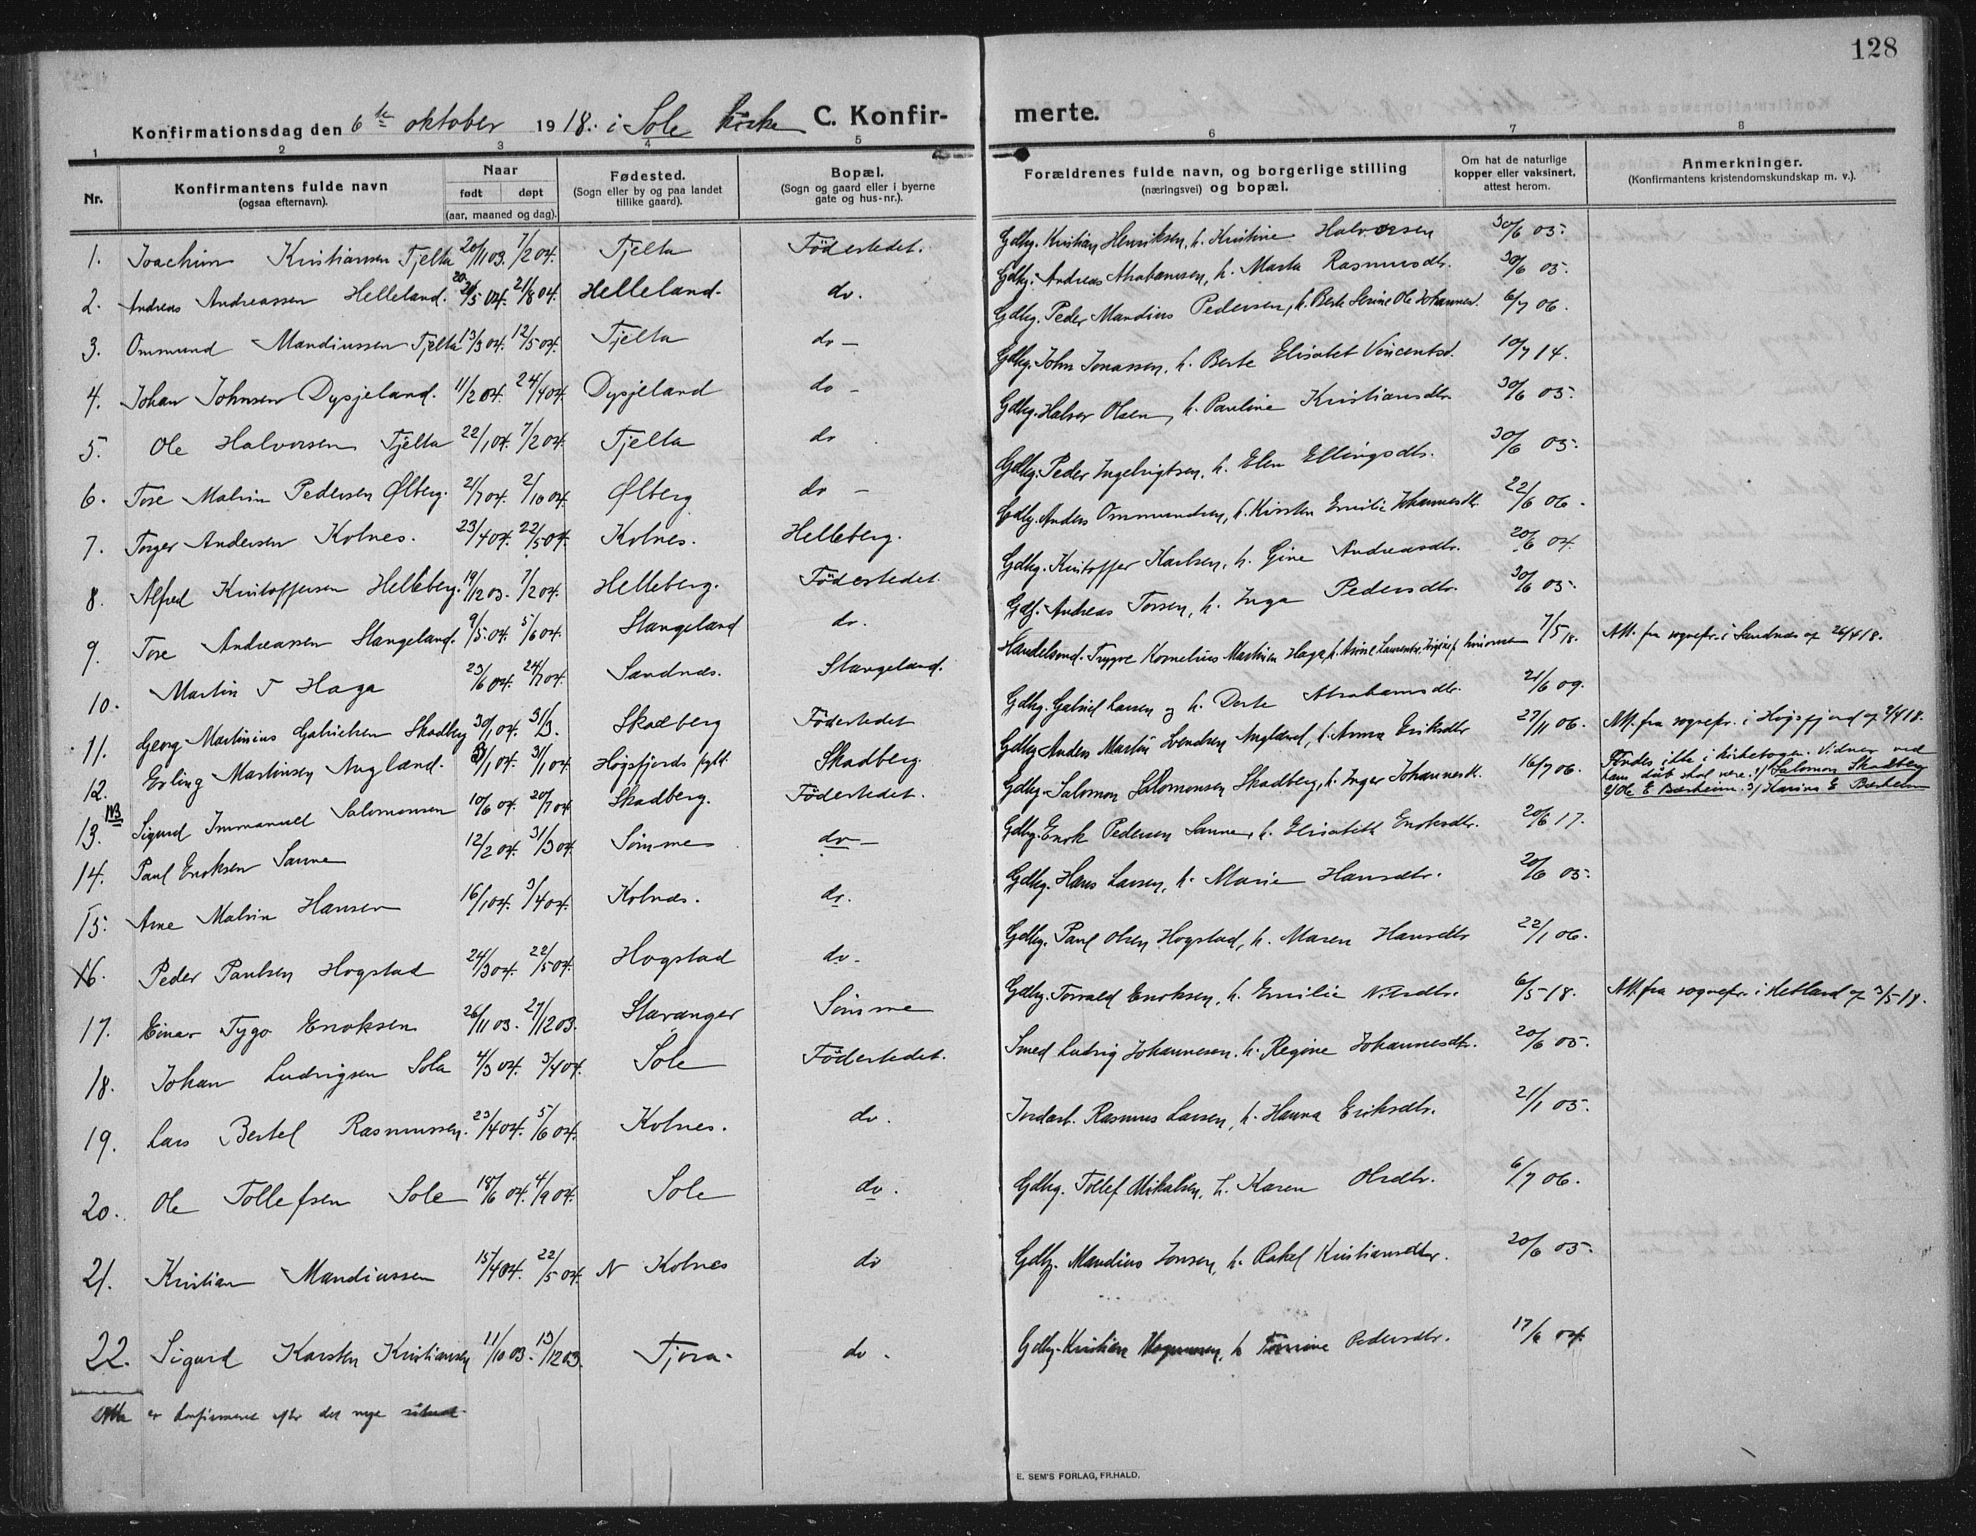 128
Konfirmationsdag den 6te oktober 1918. i Sole kirke C. Konfirmerte.
1 2 3 4 5 6 7 8
Nr. Konfirmantens fulde navn (ogsaa efternavn). Naar født døpt (aar, maaned og dag). Fødested. (Sogn eller by og paa landet tillike gaard). Bopæl. (Sogn og gaard eller i byerne gate og hus-nr.). Forældrenes fulde navn, og borgerlige stilling (næringsvei) og bopæl. Om hat de naturlige kopper eller vaksinert, attest herom. Anmerkninger. (Konfirmantens kristendomskundskap m. v.).
1. Joachim Kristiansen Tjelta 20/11 03. 7/2 04. Tjelta Födestedet. Gdbg. Kristian Henriksen, h. Kristine Halvorsen 30/6 05.
2. Andreas Andreassen Helleland. 5 04. 21/8 04. Helleland. do. Gdbg. Andreas Abrahamsen, h. Marta Rasmusdtr. 30/6 05.
3. Ommund Mandiussen Tjelta 13/3 04. 12/5 04. Tjelta do - Gdbg. Peder Mandius Pedersen, h. Berte Serine Ols Johannesd. 6/7 06.
4. Johan Johnsen Dysjeland. 11/2 04. 24/4 04. Dysjeland do - Gdbg. John Jonassen, h. Berte Elisabet Vincentsd. 10/7 14.
5. Ole Halvorsen Tjelta 22/1 04. 7/2 04. Tjelta do Gdbg. Halvor Olsen, h. Pauline Kristiansdtr. 30/6 05.
6. Tore Malvin Pedersen Ølberg. 21/7 04. 2/10 04. Ølberg do - Gdbg. Peder Ingebrigtsen, h. Elen Ellingsdtr. 30/6 05.
7. Torger Andersen Kolnes. 23/4 04. 22/5 04. Kolnes. Helleberg. Gdbg. Anders Ommundsen, h. Kirsten Emilie Johannesdtr. 22/6 06.
8. Alfred Kristoffersen Helleberg. 19/12 03. 7/2 04. Helleberg. Födestedet. Gdbg. Kristoffer Karlsen, h. Gine Andreasdtr. 20/6 04.
9. Tore Andreassen Stangeland. 9/5 04. 5/6 04. Stangeland do. Gdf. Andreas Torsen, h. Inga Pedersdtr. 30/6 05.
10. Martin T Haga 23/6 04. 24/7 04. Sandnæs. Stangeland. Handelsmd. Trygve Kornelius Martinsen Haga, h. 7/5 18. Att. fra sognepr. i Sandnæs af 26/4 18.
11. Georg Martinius Gabrielsen Skadberg 30/1 04. 31/3. Skadberg Födestedet Gdbg. Gabriel Larsen og h. Dorte Abrahamsdtr. 21/6 09.
12. Erling Martinsen Augland. 3/1 04. 31/1 04. Högsfjords Skadberg. Gdbg. Anders Martin Svendsen Augland, h. Anna Eriksdtr 27/11 06. Att. fra sognepr. i Høgsfjord af 3/4 18.
13. NB Sigurd Immanuel Salomonsen 10/6 04. 20/7 04. Skadberg. Födestedet. Gdbg. Salomon Salomonsen Skadberg, h. Inger Johannesdtr. 16/7 06. Findes ikke i kirkebogen. Vidner ved
hans dåb skal være: 1/ Salomon Skadberg
2/ Ole E Bærheim. 3/ Karina E Bærheim
14. Paul Enoksen Sanne 12/2 04. 31/3 04. Sömme do - Gdbg. Enok Pedersen Sanne, h. Elisabeth Enoksdtr. 20/6 17.
15. Arne Malvin Hansen 16/1 04. 3/4 04. Kolnæs. do. Gdbg. Hans Larsen, h. Marie Hansdtr. 20/6 05.
16. Peder Paulsen Hogstad 24/3 04. 22/5 04. Hogstad do. Gdbg. Paul Olsen Hogstad, h. Maren Hansdtr 22/1 06.
17. Einar Tygo Enoksen 26/11 03. 27/12 03. Stavanger Sömme Gdbg. Torvald Enoksen, h. Emilie Nilsdtr. 6/5 18. Att. fra sognepr. i Hetland af 3/5 18.
18. Johan Ludvigsen Sola 4/3 04. 3/4 04. Sole Födestedet. Smed Ludvig Johannesen, h. Regine Johannesdtr. 20/6 05.
19. Lars Bertel Rasmussen. 23/4 04. 5/6 04. Kolnes. do. Jordarb. Rasmus Larsen, h. Hanna Eriksdtr. 21/1 05.
20. Ole Tollefsen Sole 18/6 04. 4/9 04. Sole do. Gdbg. Tollef Mikalsen, h. Karen Olsdtr. 6/7 06.
21. Kristian Mandiussen 15/4 04. 22/5 04. N Kolnes do Gdbg. Mandius Jonsen, h. Rakel Kristiansdtr. 20/6 05.
22. Sigurd Karsten Kristiansen 11/10 03. 13/12 03. Tjora. do. Gdbg. Kristian h. Pedersdtr. 17/6 04.
er konfirmeret efter det nye
E. SEM'S FORLAG, FR.HALD.